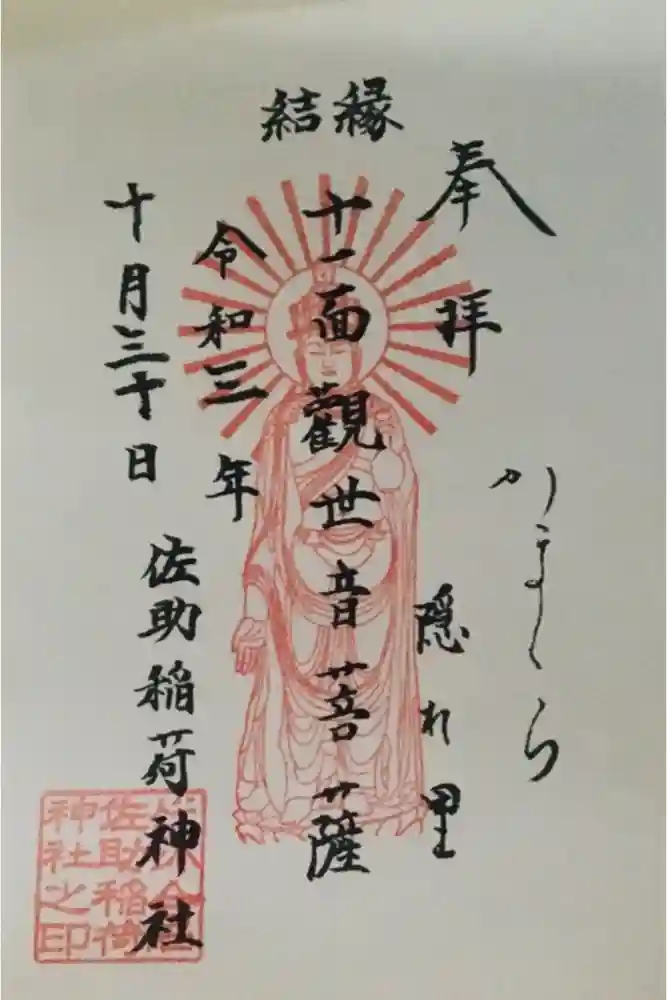 縁結
奉拝
かまくら
隠れ里
十一面觀世音菩薩
令和三年
十月三十日
佐助稲荷神社
佐助稲荷
神社之印